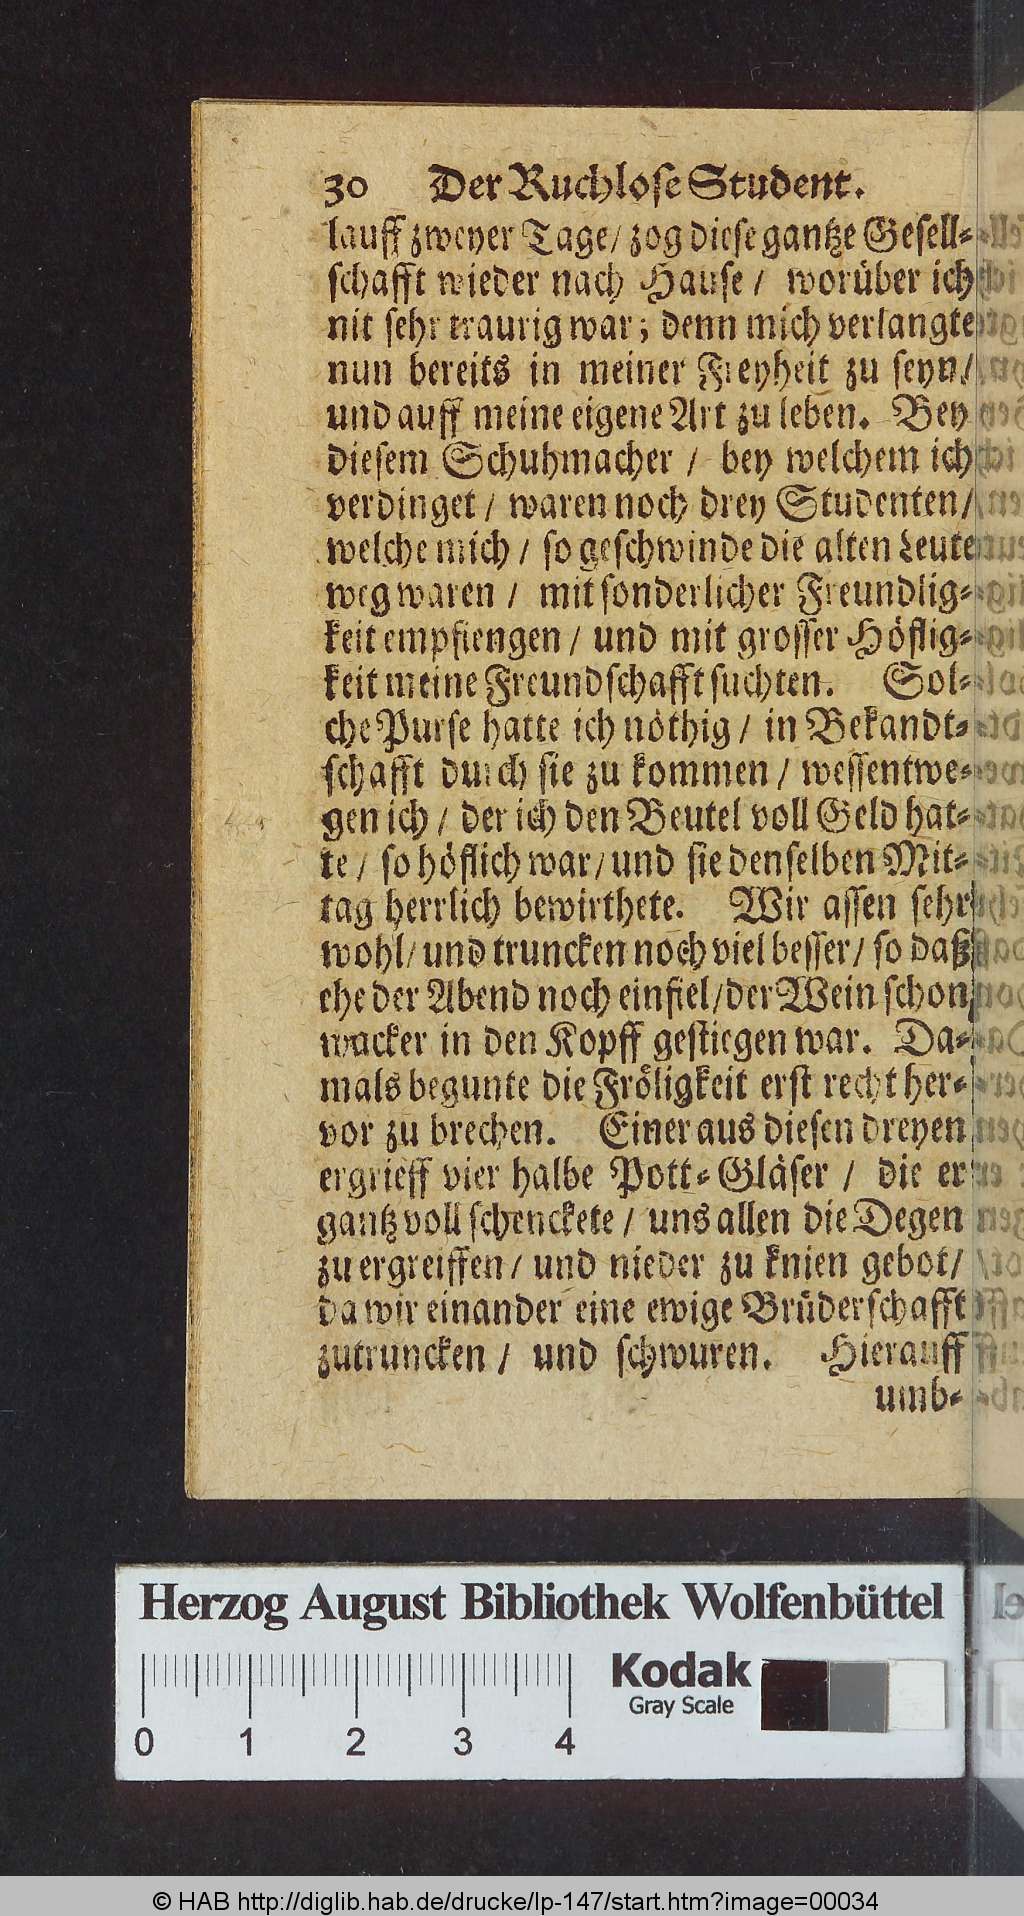 30 Der Ruchlose Student.
lauff zweyer Tage/ zog diese gantze Gesell-
schafft wieder nach Hause / worüber ich
nit sehr traurig war; denn mich verlangte
nun bereits in meiner Freyheit zu seyn/
und auff meine eigene Art zu leben. Bey
diesem Schuhmacher / bey welchem ich
verdinget / waren noch drey Studenten/
welche mich / so geschwinde die alten Leute
weg waren / mit sonderlicher Freundlig-
keit empfiengen / und mit grosser Höflig-
keit meine Freundschafft suchten. Sol-
che Purse hatte ich nöthig / in Bekandt-
schafft durch sie zu kommen / wessentwe-
gen ich / der ich den Beutel voll Geld hat-
te / so höflich war/ und sie denselben Mit-
tag herrlich bewirthete. Wir assen sehr
wohl/ und truncken noch viel besser/ so daß
ehe der Abend noch einfiel/ der Wein schon
wacker in den Kopff gestiegen war. Da-
mals begunte die Fröligkeit erst recht her-
vor zu brechen. Einer aus diesen dreyen
ergrieff vier halbe Pott-Gläser / die er
gantz voll schenckete / uns allen die Degen
zu ergreiffen / und nieder zu knien gebot/
da wir einander eine ewige Brüderschafft
zutruncken / und schwuren. Hierauff
umb-
Herzog August Bibliothek Wolfenbüttel
Kodak
Gray Scale
0 1 2 3 4
© HAB http://diglib.hab.de/drucke/lp-147/start.htm?image=00034